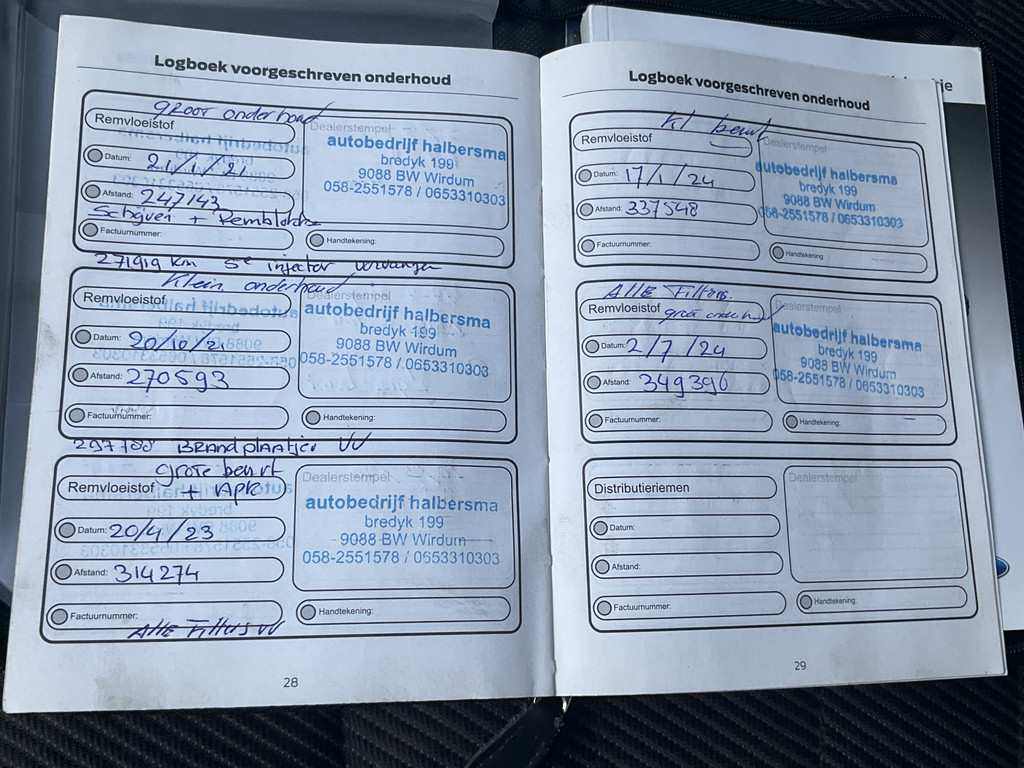 Logboek voorgeschreven onderhoud
groot onderhoud
Remvloeistof
Datum: 21/1/21
Afstand: 247143
Schijven + Remblokken
Factuurnummer:
Dealerstempel
autobedrijf halbersma
bredyk 199
9088 BW Wirdum
058-2551578 / 0653310303
Handtekening:
271919 km 5e injector vervangen
Klein onderhoud
Remvloeistof
Datum: 20/10/21
Afstand: 270593
Factuurnummer:
Dealerstempel
autobedrijf halbersma
bredyk 199
9088 BW Wirdum
058-2551578 / 0653310303
Handtekening:
297700 BRandplaatjes VV
grote beurt
Remvloeistof + APK
Datum: 20/4/23
Afstand: 314274
Factuurnummer:
Alle Filters VV
Dealerstempel
autobedrijf halbersma
bredyk 199
9088 BW Wirdum
058-2551578 / 0653310303
Handtekening:
28
Logboek voorgeschreven onderhoud
Kl beurt
Remvloeistof
Datum: 17/1/24
Afstand: 337548
Factuurnummer:
Dealerstempel
autobedrijf halbersma
bredyk 199
9088 BW Wirdum
058-2551578 / 0653310303
Handtekening:
Alle Filters.
Remvloeistof groot onderhoud
Datum: 2/7/24
Afstand: 349396
Factuurnummer:
Dealerstempel
autobedrijf halbersma
bredyk 199
9088 BW Wirdum
058-2551578 / 0653310303
Handtekening:
Distributieriemen
Datum:
Afstand:
Factuurnummer:
Dealerstempel
Handtekening:
29